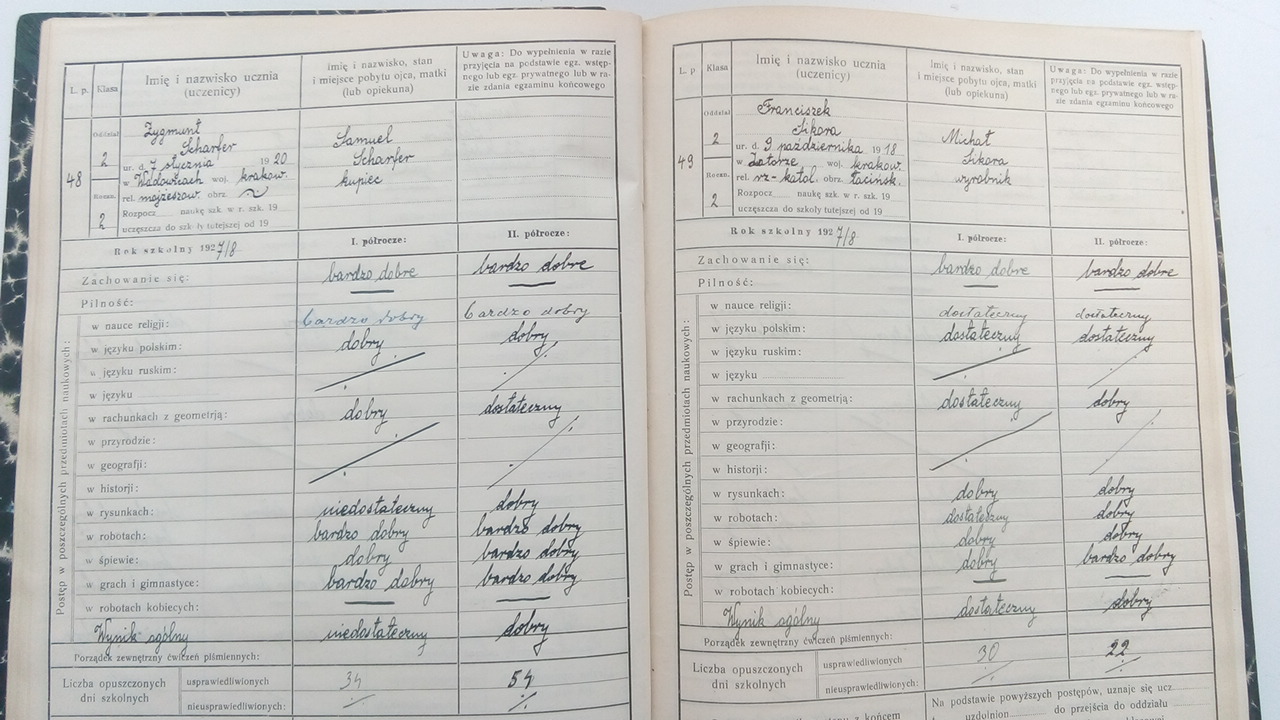 L. p.
Klasa
Imię i nazwisko ucznia
(uczenicy)
imię i nazwisko, stan
i miejsce pobytu ojca, matki
(lub opiekuna)
Uwaga: Do wypełnienia w razie
przyjęcia na podstawie egz. wstęp-
nego lub egz. prywatnego lub w ra-
zie zdania egzaminu końcowego
48
Oddział
2
Roczn.
2
Zygmunt
Scharfer
ur. d. 7 stycznia 1920
w Wadowicach woj. krakow.
rel. mojżeszow. obrz.
Rozpocz. naukę szk. w r. szk. 19
uczęszcza do szkoły tutejszej od 19
Samuel
Scharfer
kupiec
Rok szkolny 1927/8
I. półrocze:
II. półrocze:
Zachowanie się: bardzo dobre bardzo dobre
Pilność:
Postęp w poszczególnych przedmiotach naukowych:
w nauce religji: bardzo dobry bardzo dobry
w języku polskim: dobry dobry
w języku ruskim:
w języku
w rachunkach z geometrją: dobry dostateczny
w przyrodzie:
w geografji:
w historji:
w rysunkach: niedostateczny dobry
w robotach: bardzo dobry bardzo dobry
w śpiewie: dobry bardzo dobry
w grach i gimnastyce: bardzo dobry bardzo dobry
w robotach kobiecych:
Wynik ogólny niedostateczny dobry
Porządek zewnętrzny ćwiczeń piśmiennych:
Liczba opuszczonych
dni szkolnych
usprawiedliwionych 34 54
nieusprawiedliwionych:
L. p.
Klasa
Imię i nazwisko ucznia
(uczenicy)
Imię i nazwisko, stan
i miejsce pobytu ojca, matki
(lub opiekuna)
Uwaga: Do wypełnienia w razie
przyjęcia na podstawie egz. wstęp-
nego lub egz. prywatnego lub w ra-
zie zdania egzaminu końcowego
49
Oddział
2
Roczn.
2
Franciszek
Sikora
ur. d. 9 października 1918
w Zatorze woj. krakow.
rel. rz-katol. obrz. łacińsk.
Rozpocz. naukę szk. w r. szk. 19
uczęszcza do szkoły tutejszej od 19
Michał
Sikora
wyrobnik
Rok szkolny 1927/8
I. półrocze:
II. półrocze:
Zachowanie się: bardzo dobre bardzo dobre
Pilność:
Postęp w poszczególnych przedmiotach naukowych:
w nauce religji: dostateczny dostateczny
w języku polskim: dostateczny dostateczny
w języku ruskim:
w języku
w rachunkach z geometrją: dostateczny dobry
w przyrodzie:
w geografji:
w historji:
w rysunkach: dobry dobry
w robotach: dostateczny dobry
w śpiewie: dobry dobry
w grach i gimnastyce: dobry bardzo dobry
w robotach kobiecych:
Wynik ogólny dostateczny dobry
Porządek zewnętrzny ćwiczeń piśmiennych:
Liczba opuszczonych
dni szkolnych
usprawiedliwionych 30 22
nieusprawiedliwionych:
Na podstawie powyższych postępów, uznaje się ucz
uzdolnion do przejścia do oddziału
z końcem